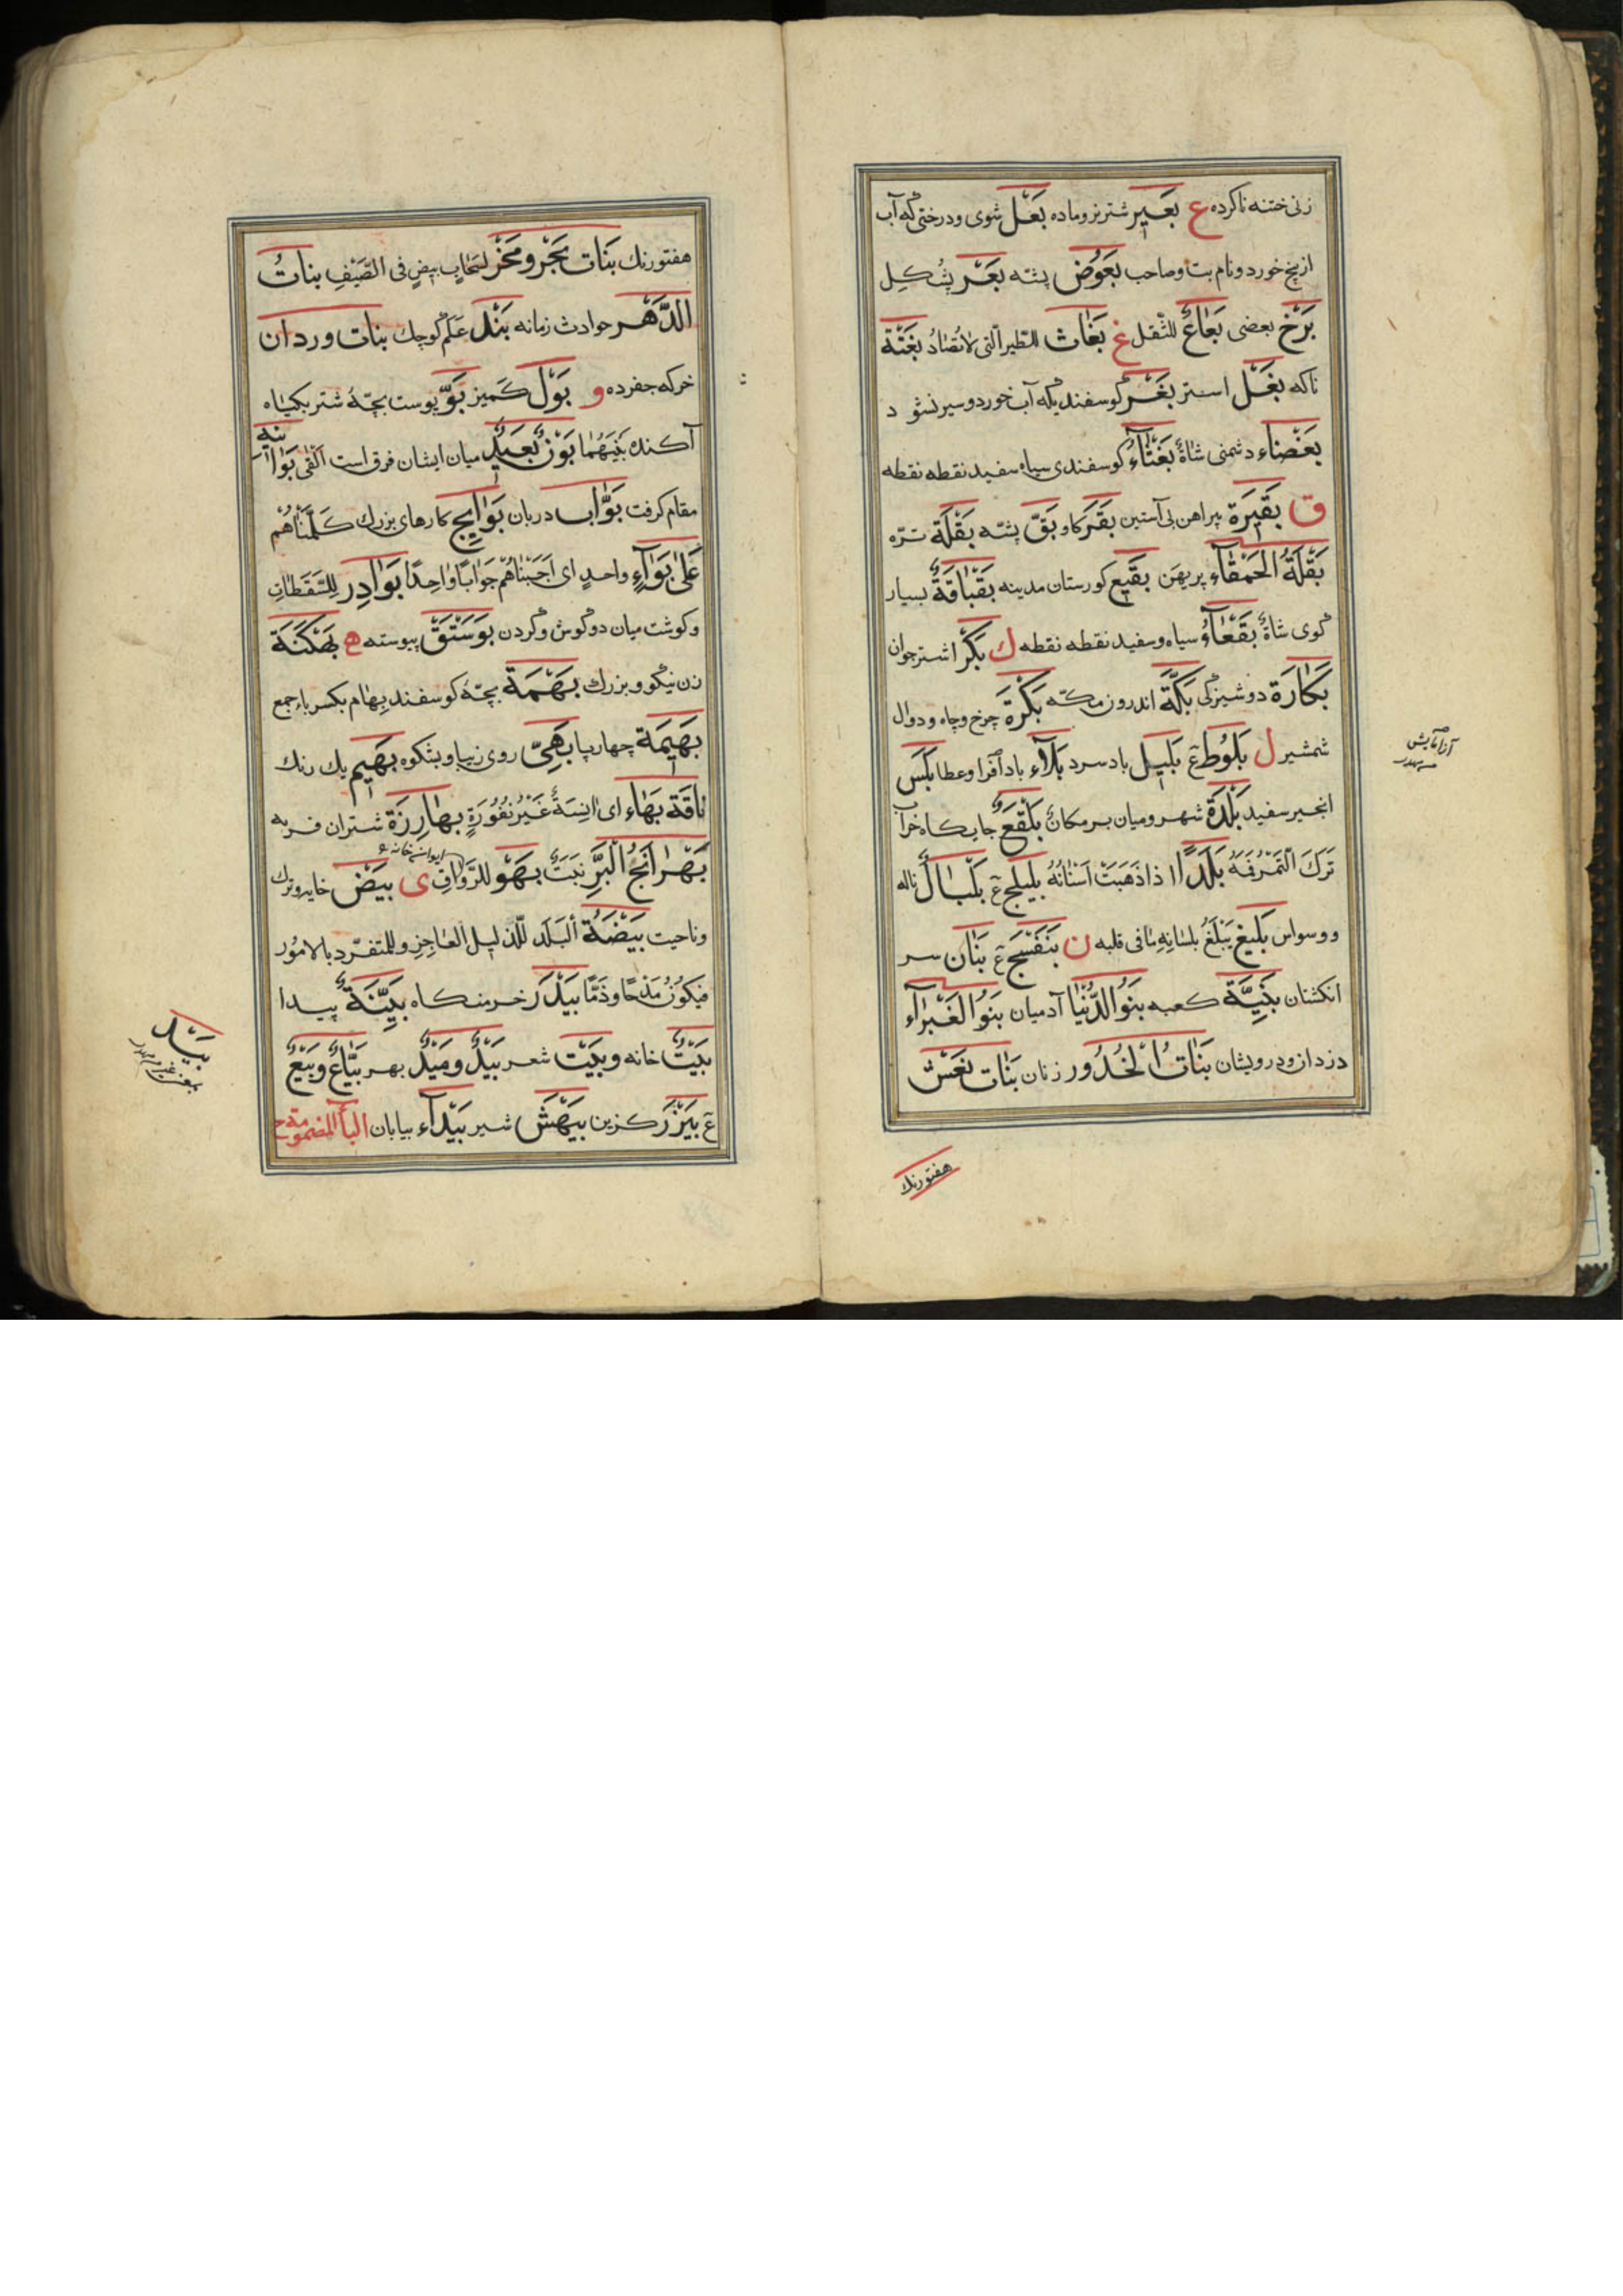 زنی ختنه ناکرده ع بَعیر شتر نر و ماده بَعْل شوی و درختی که آب
از بیخ خورد و نام بت و صاحب بَعُوض پشه بَعْر پُشکِل
بَرْخ بعضی بَعَاعٌ للثّقل غ بَغَاث للطّیر الّتی لا تُصَادُ بَغْتَة
ناکه بَغْل استر بَغْر کوسفندیکه آب خورد و سیر نشود
بَغْضَاء دشمنی شاةٌ بَغْثَآءُ کوسفندی سیاه سفید نقطه نقطه
ق بَقیرَة پیراهن بی آستین بَقَر کاو بَقّ پشه بَقْلَة تره
بَقْلَةُ الحَمْقَآء پرپهن بَقیع کورستان مدینه بَقْبَاقَةٌ بسیار
کوی شاةٌ بَقْعَآءُ سیاه و سفید نقطه نقطه ك بَکْر اشتر جوان
بَکَارَة دوشیزکی بَکَّة اندرون مکّه بَکْرَة چرخ و چاه و دوال
شمشیر ل بَلُوط ع بَلیل باد سرد بَلآء بادآفرا و عطا بَلَس
انجیر سفید بَلْدَة شهر و میان بر مکانٌ بَلْقَعٌ جایکاه خراب
تَرَكَ التَّمْرُ فَمَهُ بَلَدًا اذا ذَهَبَتْ اَسْنَانُهُ بلیلج ع بَلْبَالٌ ناله
و وسواس بَلیغ یَبْلَغُ بلسَانِهِ مَا فی قلبه ن بَنَفْسَج ع بَنَان سر
انکشتان بَنِیَّة کعبه بَنُو الدُّنْیَا آدمیان بَنُو الغَبْرَآء
دزدان و درویشان بَنَاتُ الْخُدُور زنان بَنَات نَعْش
هفتورنك
هفتورنك بَنَات بَحْر و مَخْر لسَحَاب بیضٍ فی الصَّیْفِ بناتُ
الدَّهْر حوادث زمانه بَنْد عَلَم کوچك بنات وردان
خرکه جفرده و بَوْل کمیز بَوّ پوست بچّهٔ شتر بکیاه
آکنده بَیْنَهُمَا بَوْنٌ بَعیدٌ میان ایشان فرق است اَلْقَی بَوَانیه
مقام کرفت بَوَّاب دربان بَوَایج کارهای بزرك کَلَّمْنَاهُمْ
عَلیٰ بَوَآءٍ واحدٍ ای اَجَبْنَاهُمْ جَوَابًا وَاحِدًا بَوَادِر لِلسَّقَطَاتِ
و کوشت میان دوکوش و کردن بَوَسْتَقْ پیوسته ه بَهْکَنَة
زن نیکو و بزرك بَهْمَة بچّهٔ کوسفند بِهَام بکسر باء جمع
بَهیمَة چهارپا بَهِیّ روی زیبا و بشکوه بَهیم یك رنك
نَاقَة بَهَاء ای اٰنِسَةٌ غَیْرُ نَفُورَةٍ بهَارِزَة شتران فربه
بَهْرَانَجُ الْبَرِّ نَبَتٌ بَهْو للرِّوَاقِ ی بَیْض خایه و ترك
و ناحیت بَیْضَةُ البَلَد للذلیل العَاجِزِ و للمتفرّد بالامُور
فیَکُونُ مَدْحًا وَ ذَمًّا بَیْدَر خرمنکاه بَیِّنَةٌ پیدا
بَیْتٌ خانه و بَیْت شعر بَیْدٌ و مَیْدٌ بهر بَیَّاعٌ و بَیْعٌ
ع بَیْزَر کزین بَیْهَش شیر بَیْدَآء بیابان البآءُ المضمومة
بَیْدَ